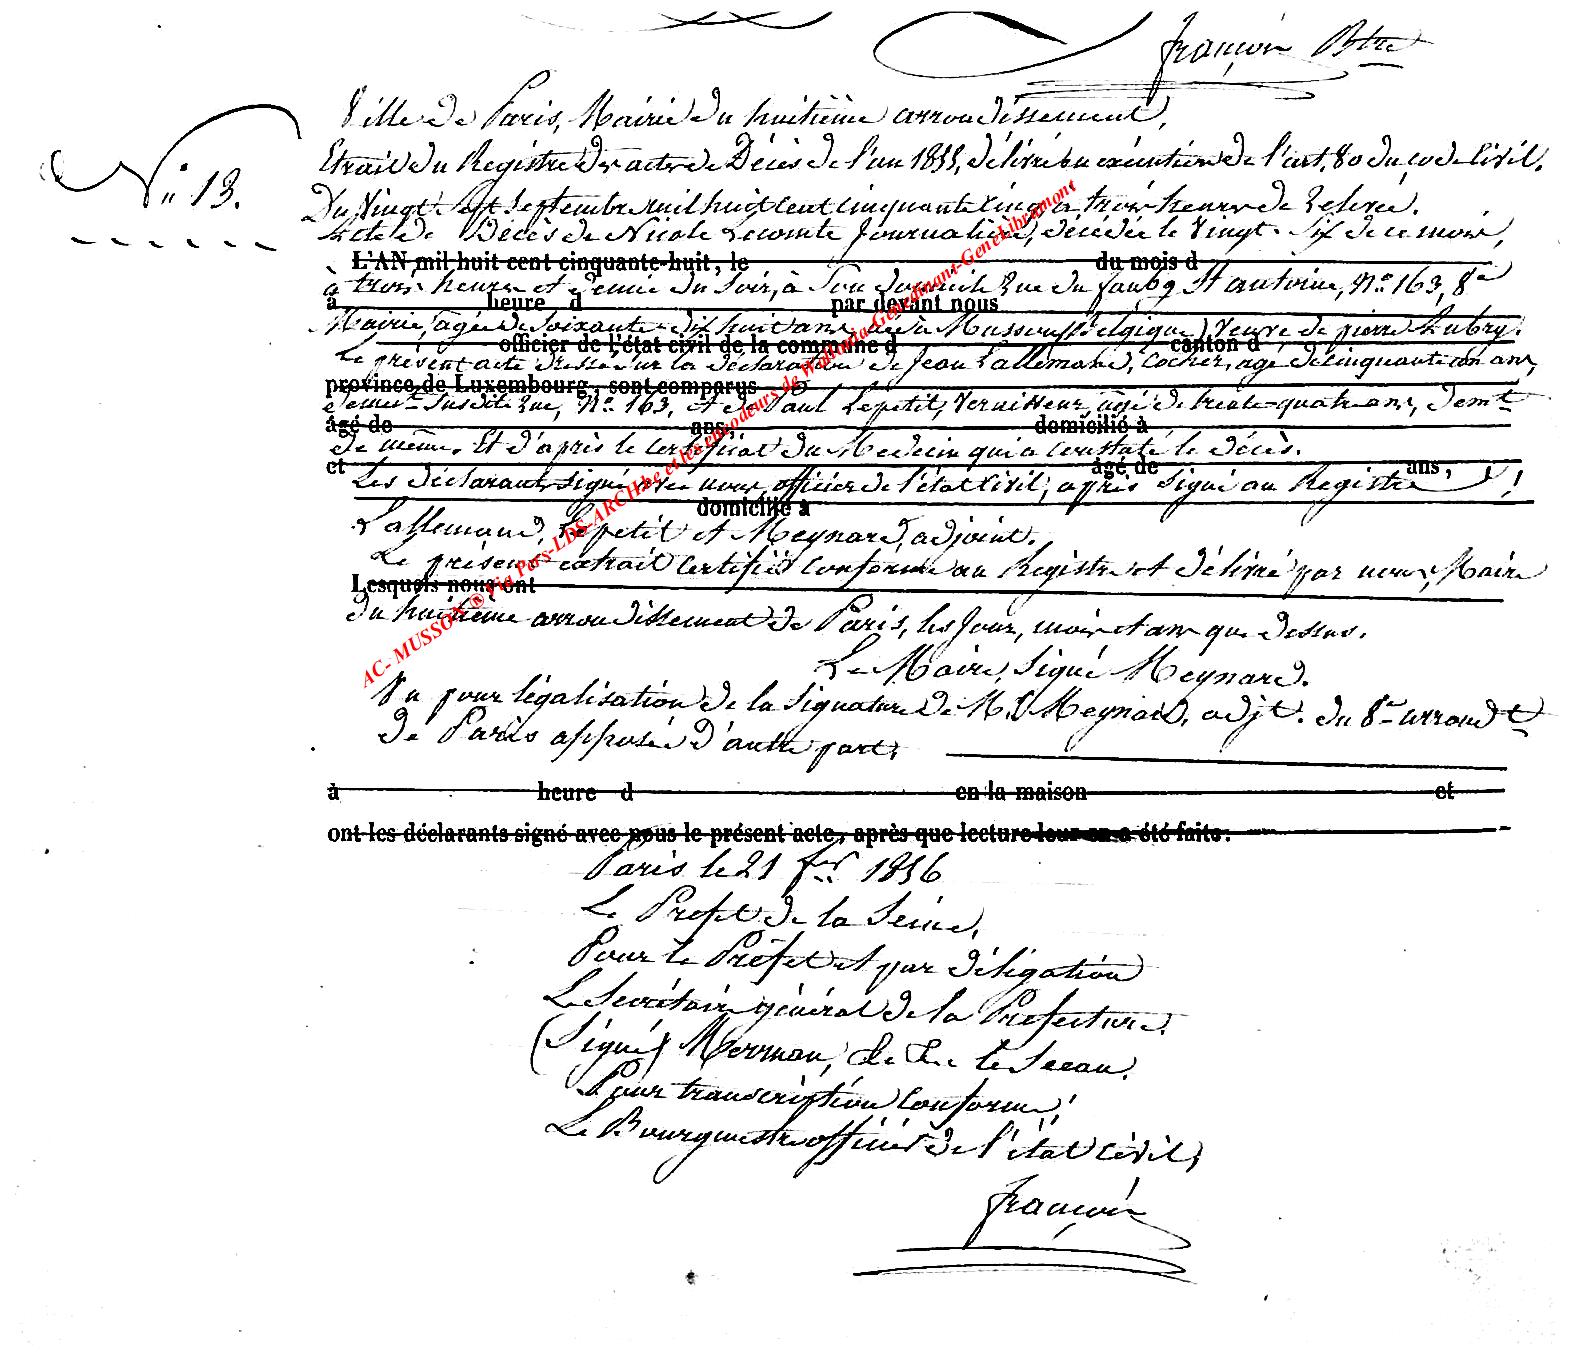 françois Btre
Ville de Paris, Mairie du huitième arrondissement,
N° 13.
Etrait du Registre des actes de Décès de l'an 1855, délivré en exécution de l'art. 80 du code Civil.
Du Vingt Sept Septembre mil huit cent cinquante cinq à trois heures de relevée.
Acte de Décès de Nicole Lecomte Journalière, décédée le Vingt Six de ce mois,
L'AN mil huit cent cinquante-huit, le du mois d
à trois heures et demie du Soir, à Son domicile Rue du faubg St antoine, N° 163, 8e
à heure d par devant nous
Mairie, âgée de Soixante dix huit ans, née à Musson (Belgique) Veuve de pierre Aubry.
officier de l'état civil de la commune d canton d
Le présent acte dressé sur la déclaration de Jean Lallemand, Cocher, âgé de cinquante cinq ans,
province de Luxembourg, sont comparus
demt Susdite Rue, N° 163, et de Paul Lepetit, Vernisseur, âgé de trente-quatre ans, demt
âgé de ans, domicilié à
de même. Et d'après le certificat du Médecin qui a constaté le décès.
et âgé de ans,
Les déclarants Signé avec nous, officier de l'état Civil, après Signé au Registre
domicilié à
Lallemand, Lepetit et Meynard, adjoint.
Le présent extrait certifié conforme au Registre et délivré par nous, Maire
Lesquels nous ont
du huitième arrondissement de Paris, les Jour, mois et an que dessus.
Le Maire, Signé Meynard.
Vu pour légalisation de la Signature de M. Meynard, adjt. du 8e arrondt
de Paris apposée d'autre part,
à heure d en la maison et
ont les déclarants signé avec nous le présent acte, après que lecture leur en a été faite.
Paris le 21 fer 1856
Le Préfet de la Seine,
Pour le Préfet et par délégation
Le Secrétaire général de la Préfecture.
(Signé) Merruau, le Sceau.
Pour transcription Conforme,
Le Bourgmestre officier de l'état Civil,
françois
AC- MUSSON ® via Pars-LDS-ARCHBe et les encodeurs de Wallonia-Genedinant-GeneLibramont